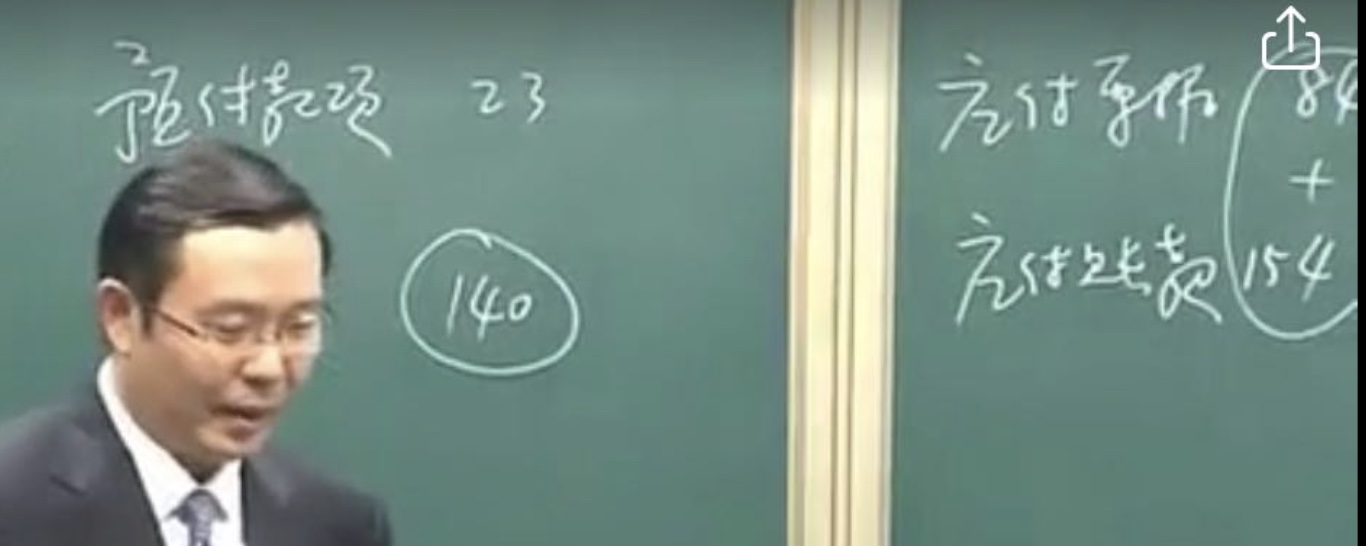 预付款项 23
140
应付票据 84
+
应付账款 154